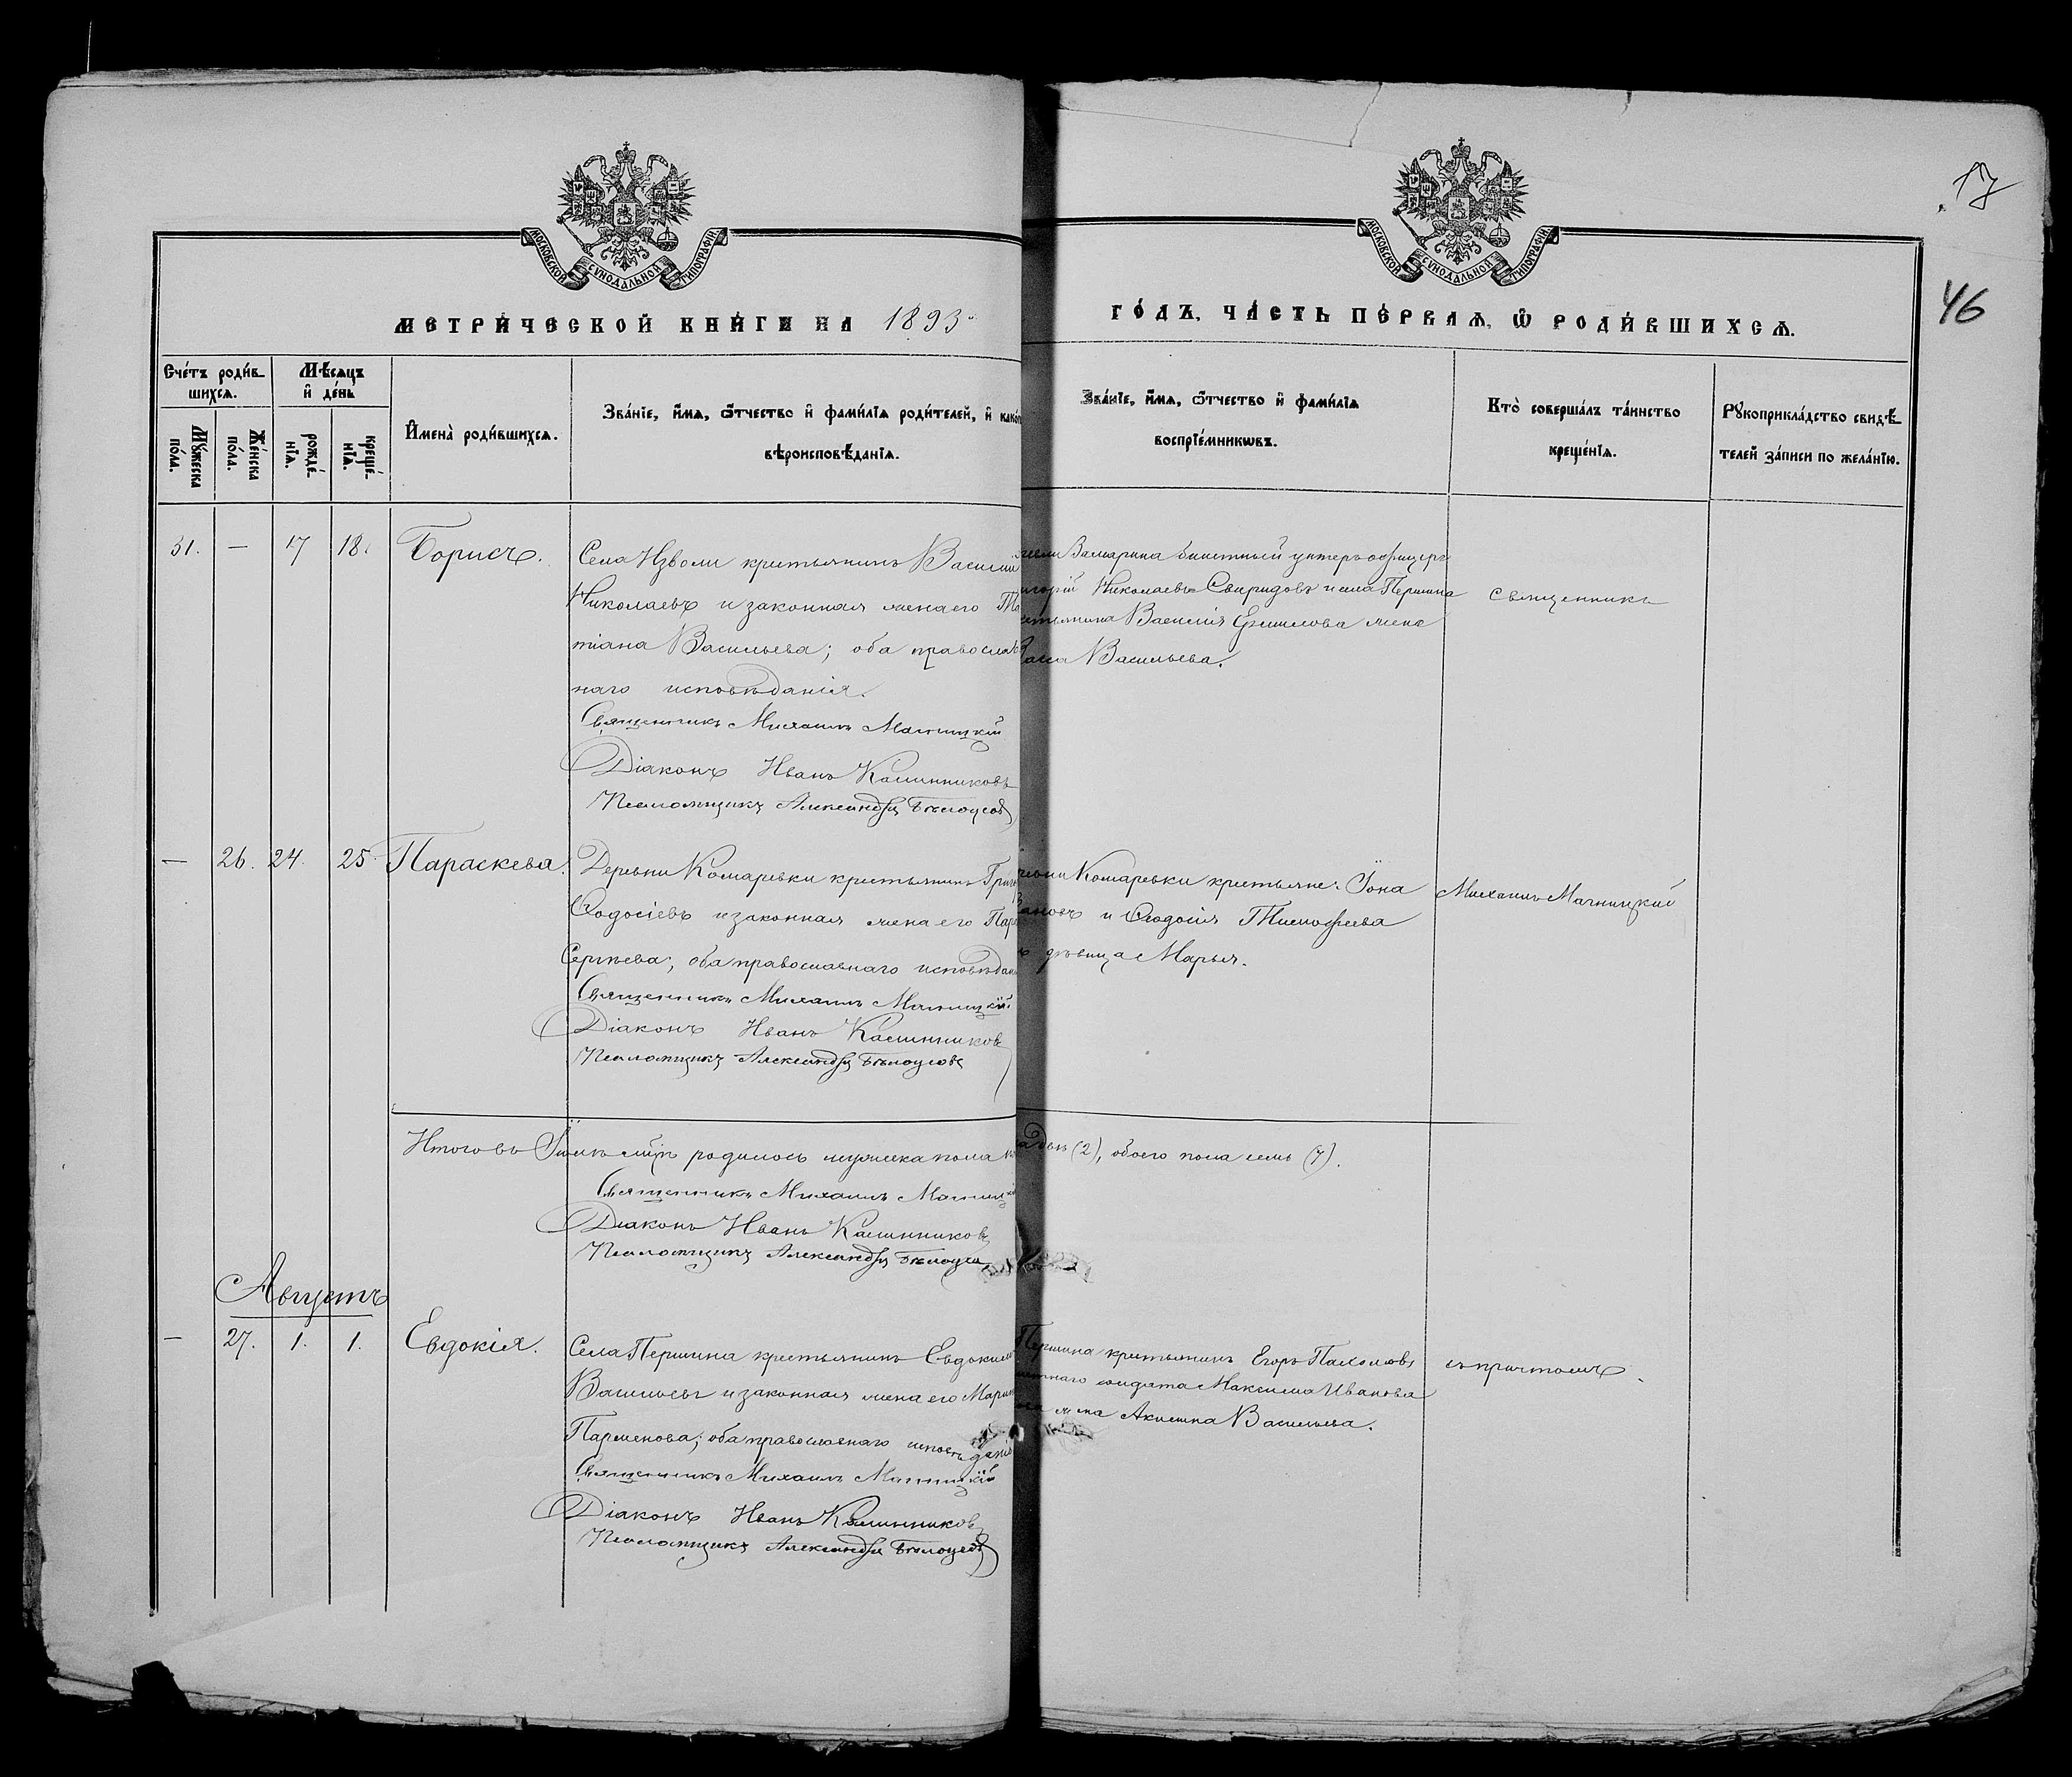 17
46
МОСКОВСКОЙ СУНОДАЛЬНОЙ ТИПОГРАФІИ
МОСКОВСКОЙ СУНОДАЛЬНОЙ ТИПОГРАФІИ
МЕТРИ́ЧЕСКОЙ КНИ́ГИ НА 1893
ГО́ДЪ, ЧА́СТЬ ПЕ́РВАѦ, Ѡ҆ РОДИ́ВШИХСѦ.
Сче́тъ роди́в-
шихсѧ.
Мѣ́сѧцъ
и҆ де́нь
Мꙋ́жеска по́ла.
Же́нска по́ла.
рожде́-нїѧ.
креще́-нїѧ.
И҆мена̀ роди́вшихсѧ.
Зва́нїе, и҆́мѧ, ѻ҆́тчество и҆ фами́лїѧ роди́телей, и҆ како́
вѣроисповѣ́данїѧ.
Зва́нїе, и҆́мѧ, ѻ҆́тчество и҆ фами́лїѧ
воспрїе́мникѡвъ.
Кто̀ соверша́лъ та́инство
креще́нїѧ.
Рꙋкоприкла́дство свидѣ́-
телей за́писи по жела́нїю.
31. — 17 18. Борисъ.
Села Изволи крестьянинъ Василій
Николаевъ и законная жена его Та
тіана Васильева; оба православ
наго исповѣданія.
Священникъ Михаилъ Магницкій
Діаконъ Иванъ Калинниковъ
Псаломщикъ Александръ Бѣлоусовъ
билетный унтеръ-офицеръ
Николаевъ Свиридовъ и села Першина
Василія Ефимова жена
Васильева.
священникъ
— 26. 24. 25. Параскева.
Деревни Комаревки крестьянинъ Григ
Ѳеодосіевъ и законная жена его Пара
Сергѣева; оба православнаго исповѣдан
Священникъ Михаилъ Магницкій
Діаконъ Иванъ Калинниковъ
Псаломщикъ Александръ Бѣлоусовъ
Комаревки крестьяне: Іона
и Ѳеодосія Тимофеева
дѣвица Марья.
Михаилъ Магницкій
Итого въ Іюлѣ мѣс. родилось мужеска пола
(2), обоего пола семь (7).
Священникъ Михаилъ Магницкій
Діаконъ Иванъ Калинниковъ
Псаломщикъ Александръ Бѣлоусов
Августъ
— 27. 1. 1. Евдокія.
Села Першина крестьянинъ Евдокимъ
Васильевъ и законная жена его Марин
Парменова; оба православнаго исповѣданія
Священникъ Михаилъ Магницкій
Діаконъ Иванъ Калинниковъ
Псаломщикъ Александръ Бѣлоусовъ
Першина крестьянинъ Егоръ Пахомовъ
солдата Максима Иванова
жена Акилина Васильева.
съ причтомъ.